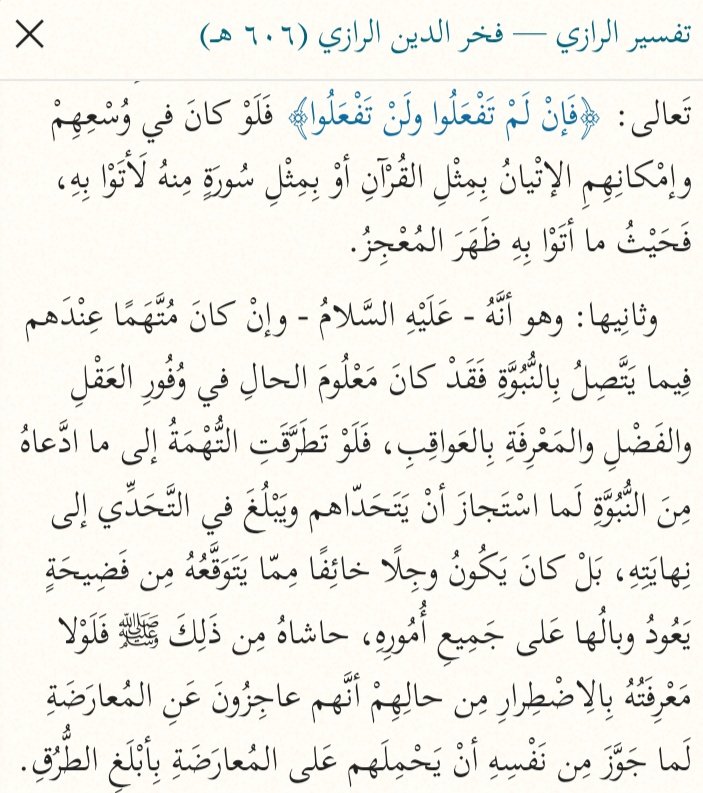 تفسير الرازي — فخر الدين الرازي (٦٠٦ هـ)
تَعالى: ﴿فَإنْ لَمْ تَفْعَلُوا ولَنْ تَفْعَلُوا﴾ فَلَوْ كانَ في وُسْعِهِمْ
وإمْكانِهِمِ الإتْيانُ بِمِثْلِ القُرْآنِ أوْ بِمِثْلِ سُورَةٍ مِنهُ لَأتَوْا بِهِ،
فَحَيْثُ ما أتَوْا بِهِ ظَهَرَ المُعْجِزُ.
وثانِيها: وهو أنَّهُ - عَلَيْهِ السَّلامُ - وإنْ كانَ مُتَّهَمًا عِنْدَهم
فِيما يَتَّصِلُ بِالنُّبُوَّةِ فَقَدْ كانَ مَعْلُومَ الحالِ في وُفُورِ العَقْلِ
والفَضْلِ والمَعْرِفَةِ بِالعَواقِبِ، فَلَوْ تَطَرَّقَتِ التُّهْمَةُ إلى ما ادَّعاهُ
مِنَ النُّبُوَّةِ لَما اسْتَجازَ أنْ يَتَحَدّاهم ويَبْلُغَ في التَّحَدِّي إلى
نِهايَتِهِ، بَلْ كانَ يَكُونُ وجِلًا خائِفًا مِمّا يَتَوَقَّعُهُ مِن فَضِيحَةٍ
يَعُودُ وبالُها عَلى جَمِيعِ أُمُورِهِ، حاشاهُ مِن ذَلِكَ ﷺ فَلَوْلا
مَعْرِفَتُهُ بِالِاضْطِرارِ مِن حالِهِمْ أنَّهم عاجِزُونَ عَنِ المُعارَضَةِ
لَما جَوَّزَ مِن نَفْسِهِ أنْ يَحْمِلَهم عَلى المُعارَضَةِ بِأبْلَغِ الطُّرُقِ.